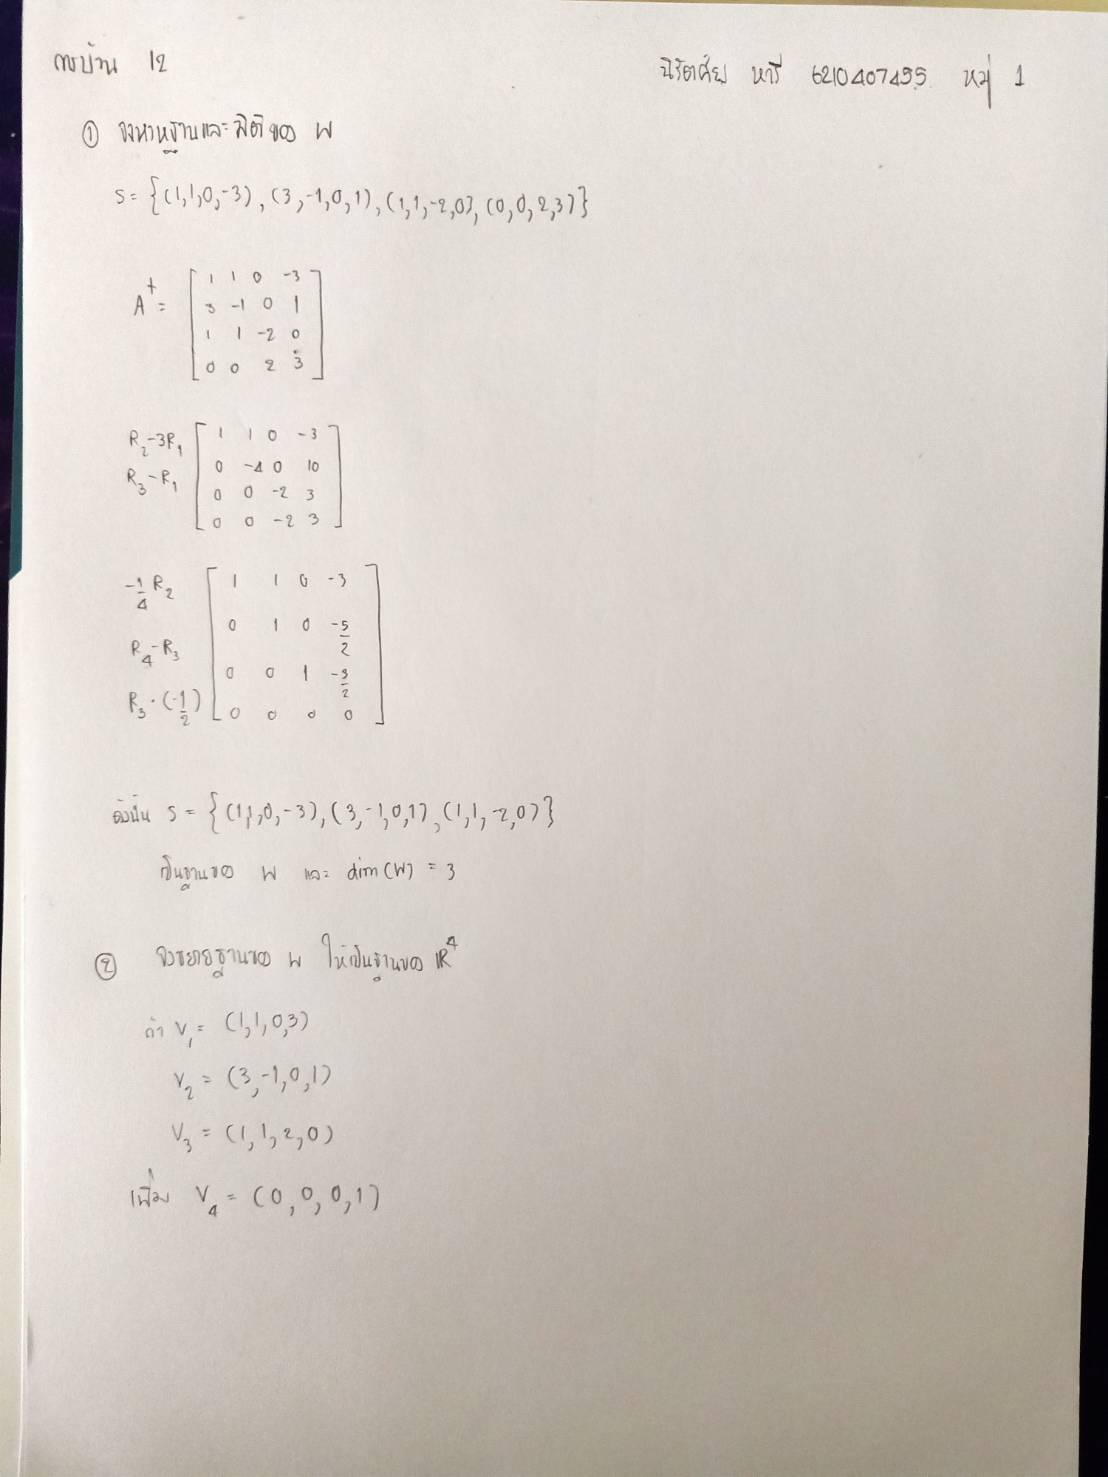 การบ้าน 12
นิรัตศัย หารี 6210407455 หมู่ 1
① จงหาฐานและมิติของ W
S = {(1,1,0,-3), (3,-1,0,1), (1,1,-2,0), (0,0,2,3)}
A^t = [
1 1 0 -3
3 -1 0 1
1 1 -2 0
0 0 2 3
]
R₂-3R₁
R₃-R₁
[
1 1 0 -3
0 -4 0 10
0 0 -2 3
0 0 -2 3
]
-1/4 R₂
R₄-R₃
R₃·(-1/2)
[
1 1 0 -3
0 1 0 -5/2
0 0 1 -3/2
0 0 0 0
]
ดังนั้น S = {(1,1,0,-3), (3,-1,0,1), (1,1,-2,0)}
เป็นฐานของ W และ dim(W) = 3
② จงขยายฐานของ W ให้เป็นฐานของ ℝ⁴
ถ้า V₁ = (1,1,0,3)
V₂ = (3,-1,0,1)
V₃ = (1,1,2,0)
เพิ่ม V₄ = (0,0,0,1)